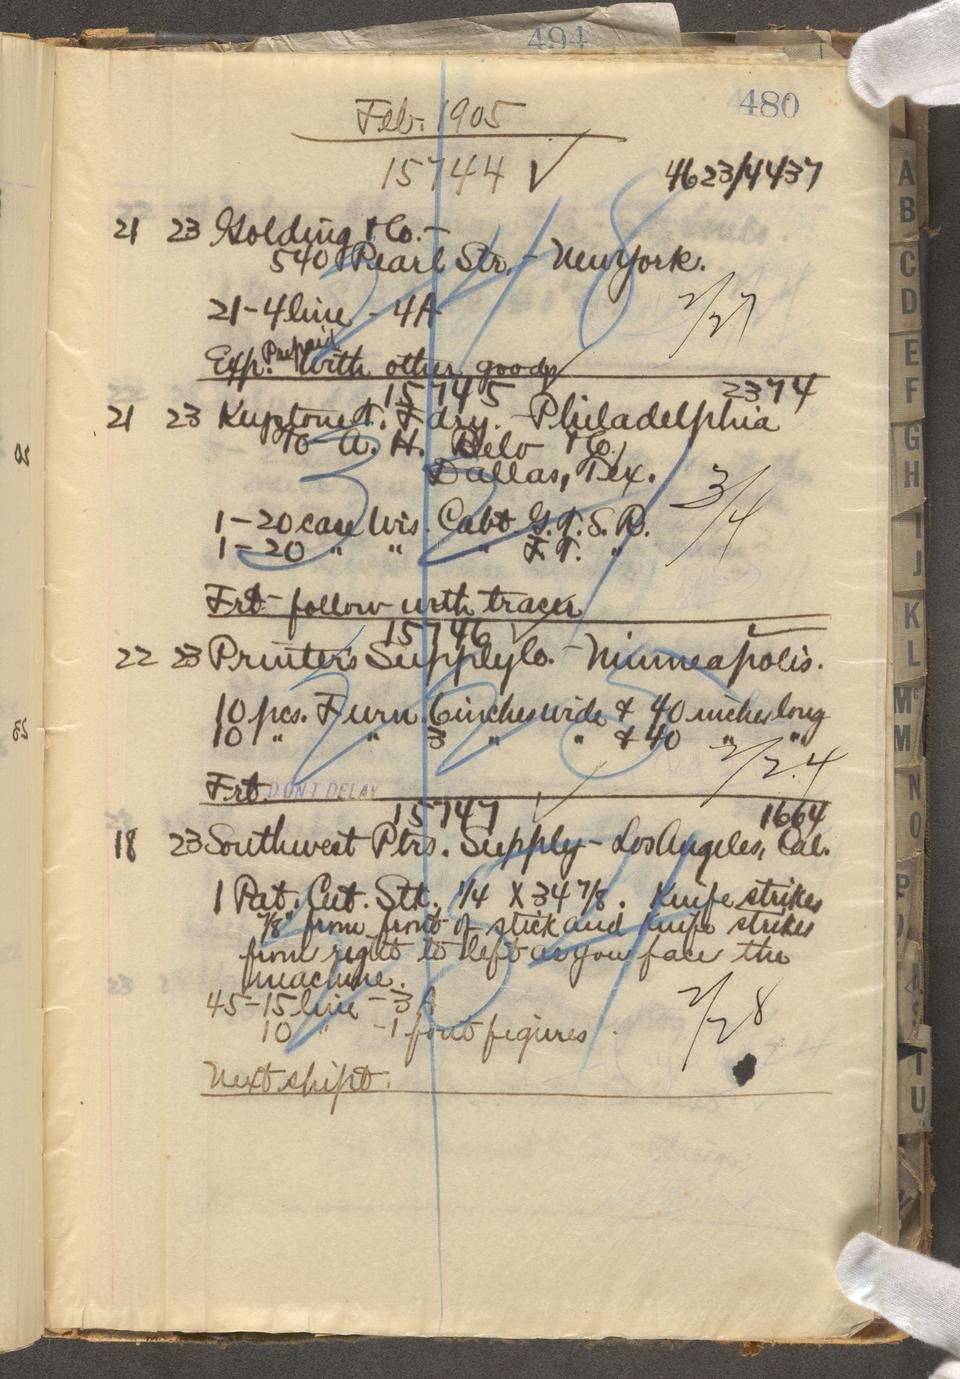 494
480
Feb. 1905
15744 ✓ 4623/4437
21 23 Golding & Co. -
540 Pearl Str. - New York.
21 - 4 line - 4A
2/27
Exp. Prepaid with other goods
15745 2374
21 23 Keystone T. Fdry. - Philadelphia
To A. H. Belo & Co.
Dallas, Tex.
3/4
1 - 20 case Wis. Cabt G. T. S. R.
1 - 20 " " " F. T. "
Frt - follow with tracer
15746 ✓
22 23 Printer's Supply Co. - Minneapolis.
10 pcs. Furn. 6 inches wide & 40 inches long
10 " " 3 " " & 40 " "
2/24
Frt. DON'T DELAY
15747 1664
18 23 Southwest Ptrs. Supply - Los Angeles, Cal.
1 Pat. Cut. Stk. 1/4 X 34 7/8. Knife strikes
7/8" from front of stick and knife strikes
from right to left as you face the
machine.
45 - 15 line - 3A
2/28
10 " - 1 font figures
Next shipt.
A
B
C
D
E
F
G
H
I
J
K
L
Mc
M
N
O
P
S
T
U